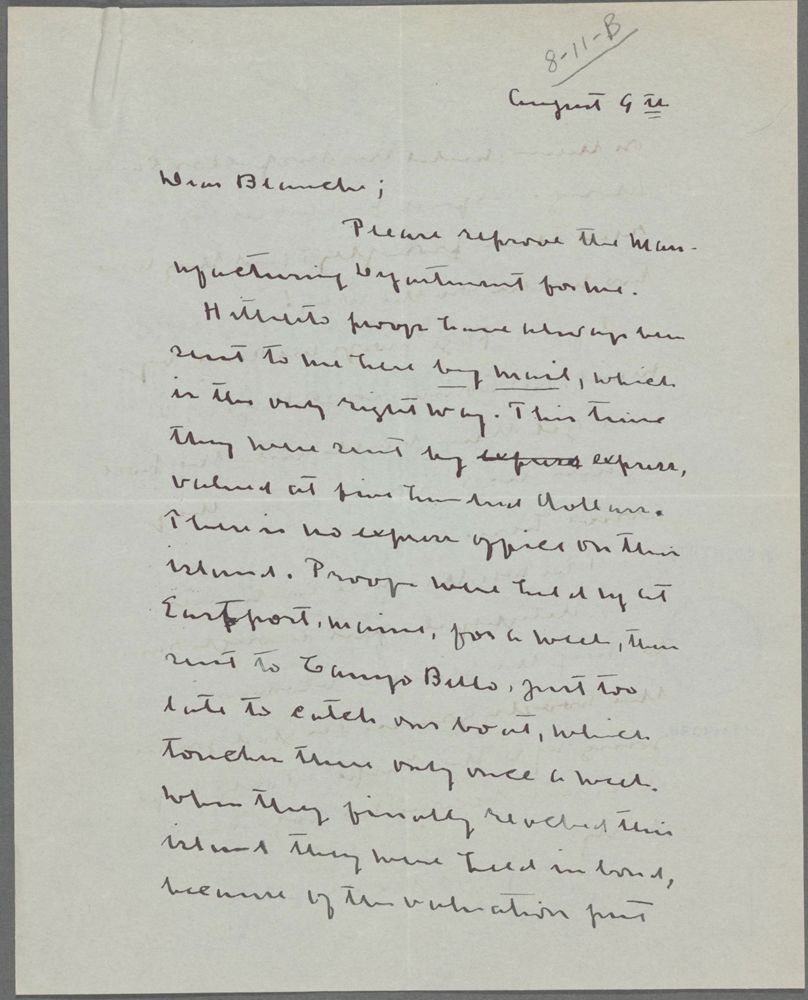 8-11-B
August 9th
Dear Blanche;
Please reprove the Man-
ufacturing Department for me.
Hitherto proofs have always been
sent to me here by mail, which
is the only right way. This time
they were sent by express express,
valued at five hundred dollars.
There is no express office on this
island. Proofs were held up at
Eastport, Maine, for a week, then
sent to Campo Bello, just too
late to catch our boat, which
touches there only once a week.
When they finally reached this
island they were held in bond,
because of the valuation put